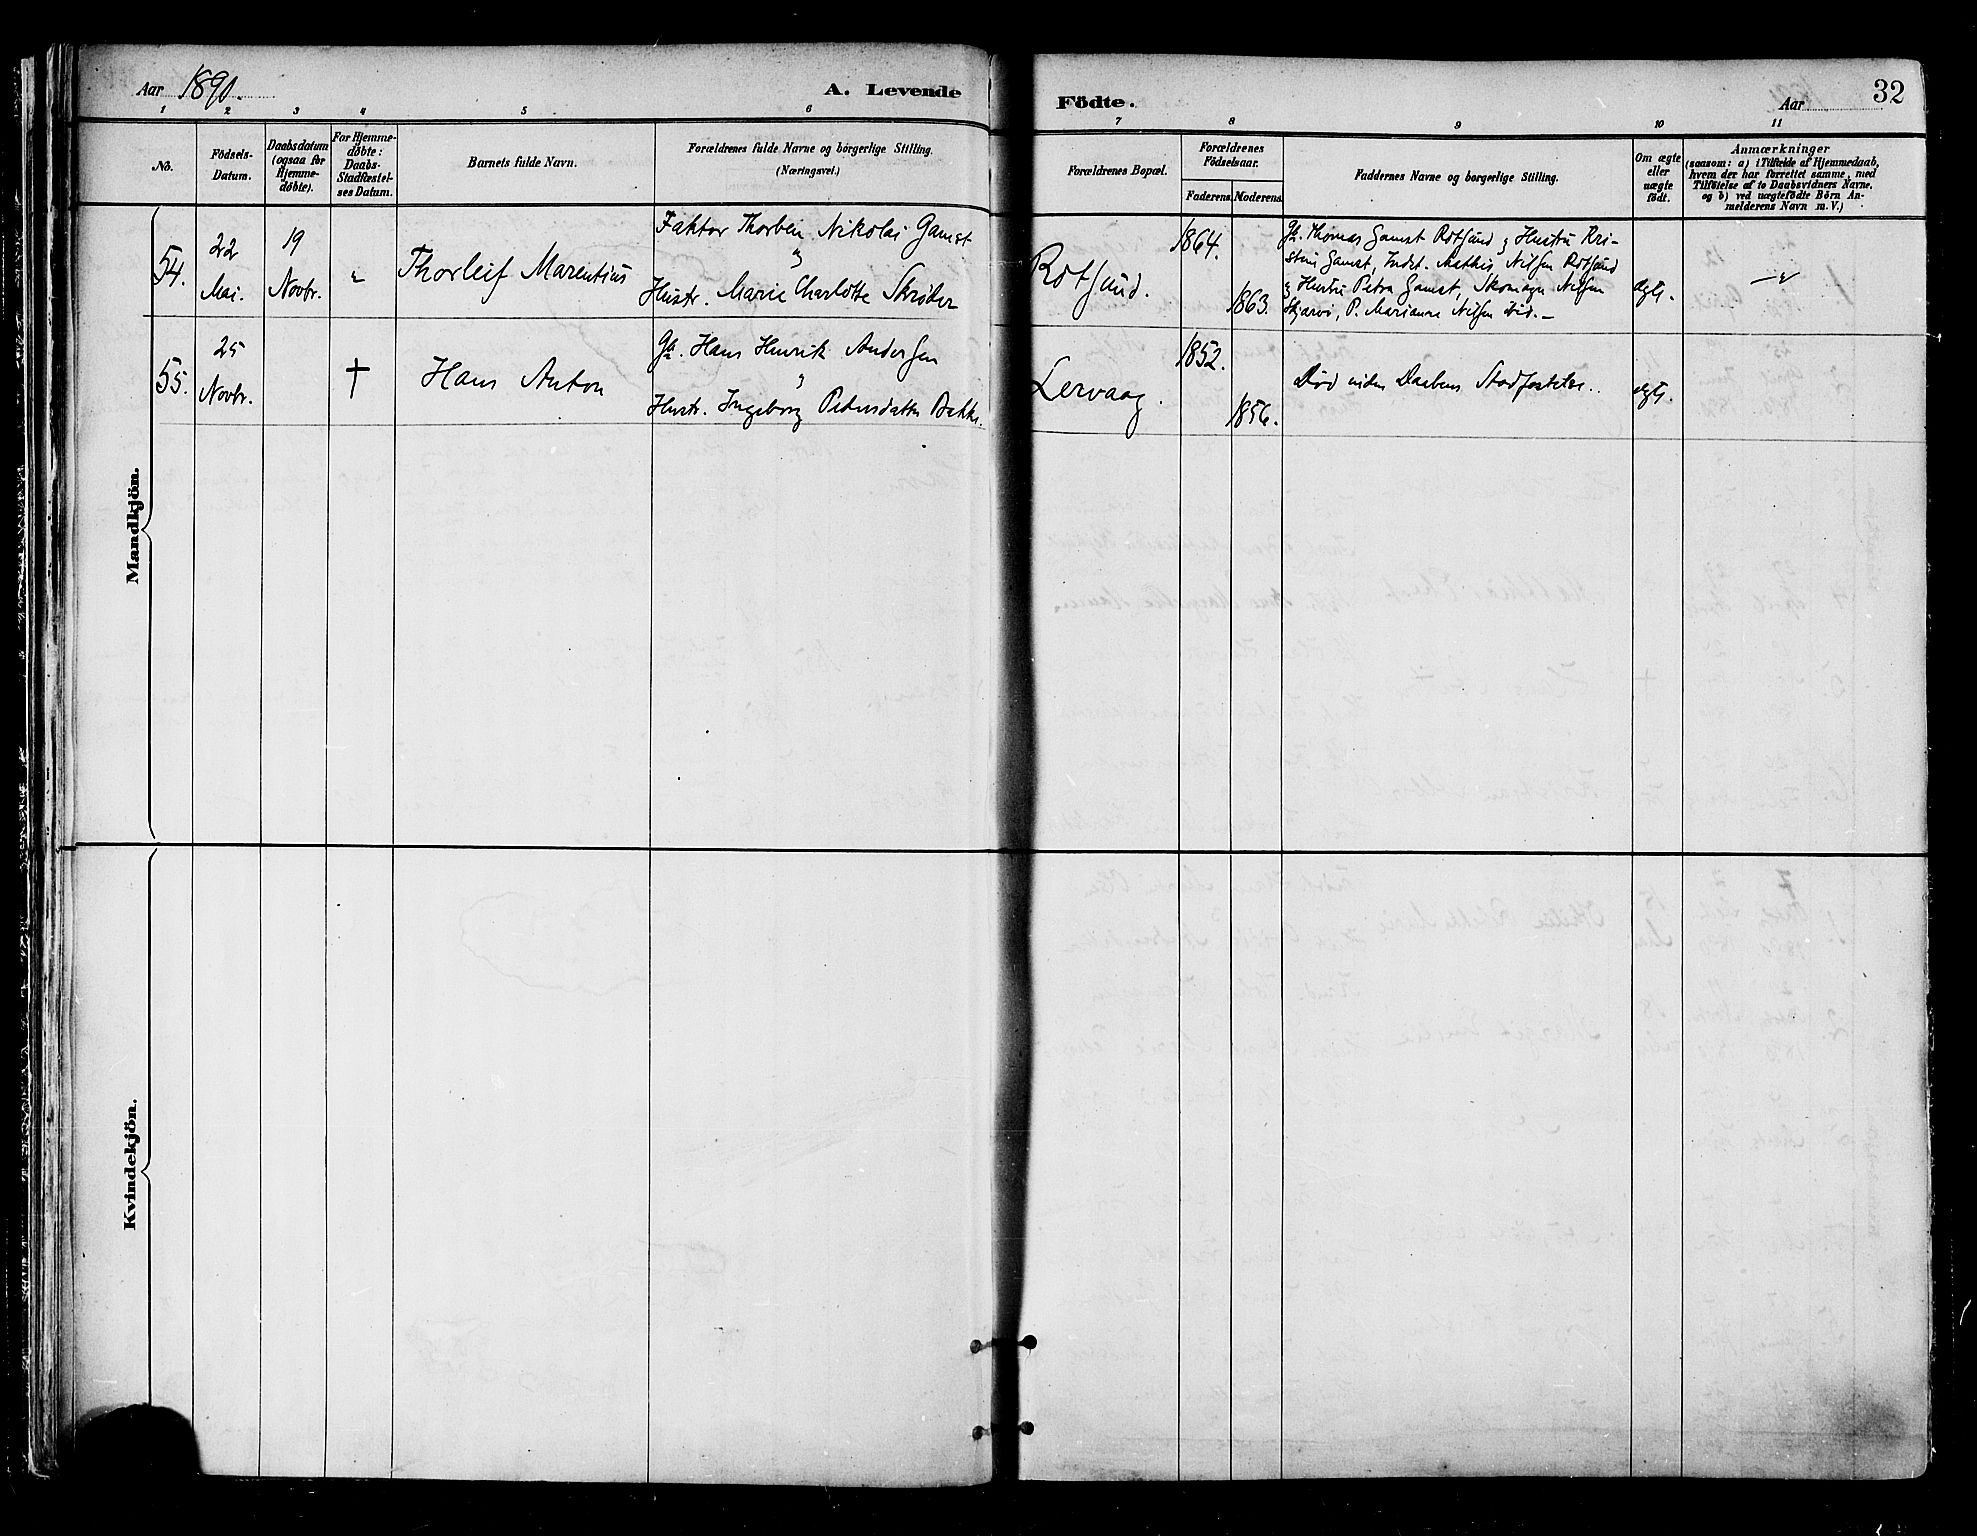 Aar 1890.
A. Levende
Födte.
Aar
32
1 2 3 4 5 6 7 8 9 10 11
No.
Födsels-
Datum.
Daabsdatum
(ogsaa for
Hjemme-
döbte).
For Hjemme-
döbte:
Daabs-
Stadfæstel-
ses Datum.
Barnets fulde Navn.
Forældrenes fulde Navne og borgerlige Stilling.
(Næringsvei.)
Forældrenes Bopæl.
Forældrenes
Födselsaar.
Faderens. Moderens.
Faddernes Navne og borgerlige Stilling.
Om ægte
eller
uægte
födt.
Anmærkninger
(saasom: a) i Tilfælde af Hjemmedaab,
hvem der har forrettet samme, med
Tilföielse af to Daabsvidners Navne,
og b) ved uægtefödte Börn An-
melderens Navn m. V.)
Mandkjön.
54.
22
Mai.
19
Novbr.
"
Thorleif Marentius
Faktor Thorben Nikolai Gamst
og
Hustr. Marie Charlotte Skrøder
Rotsund.
1864.
1863.
Gb. Thomas Gamst Rotsund og Hustru Kri-
stine Gamst, Indst. Mathis Nilsen Rotsund
og Hustru Petra Gamst, Skomager Nilsen
Skjervø, P. Marianne Nilsen ibid. –
ægte.
55.
25
Novbr.
†
Hans Anton
Gb. Hans Henrik Andersen
og
Hustr. Ingeborg Pedersdatter Bakke.
Lervaag.
1852.
1856.
Død inden Daabens Stadfæstelse.
ægte.
Kvindekjön.